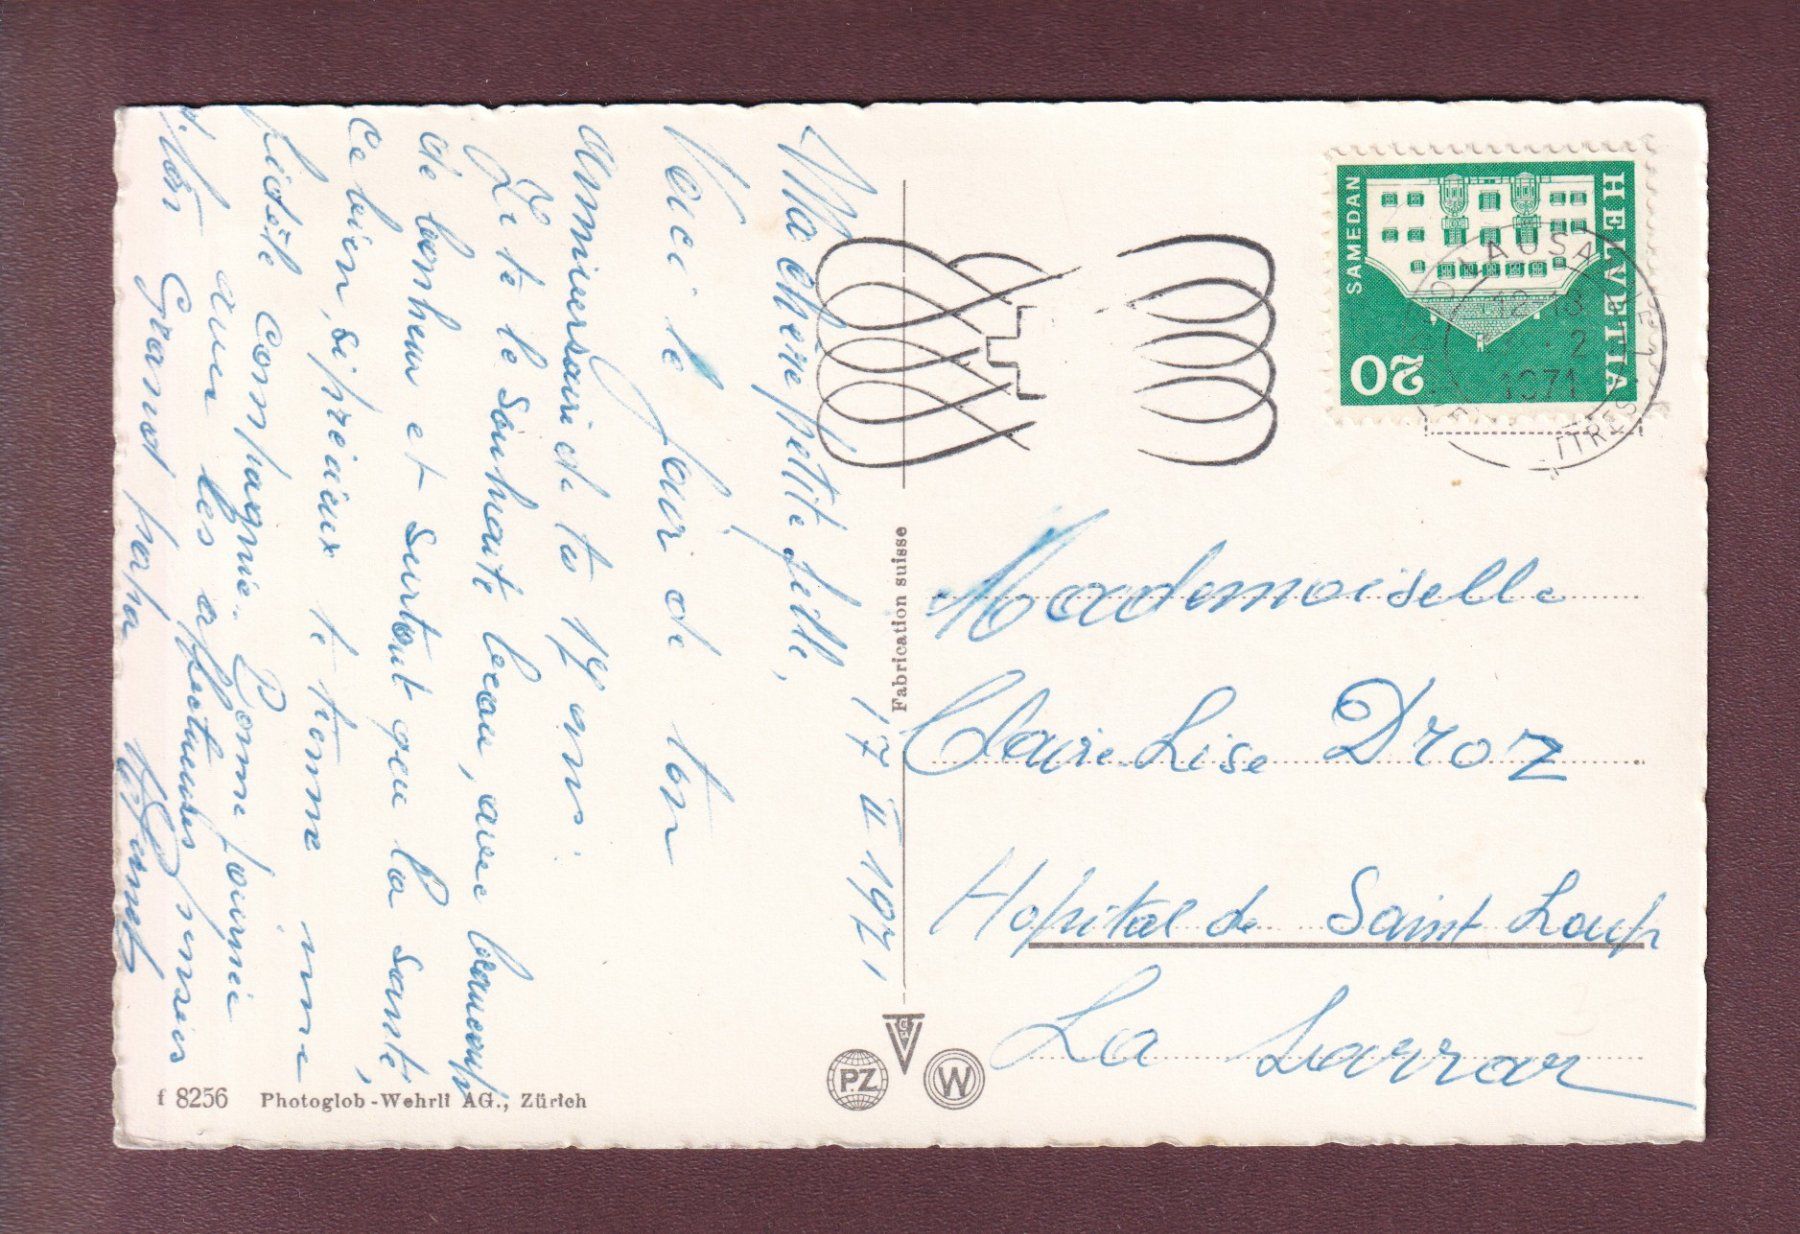 Ma chère petite fille,
17 II 1971,
Voici le jour de ton
anniversaire de tes 19 ans.
Je te le souhaite beau, avec beaucoup
de bonheur et surtout que la santé,
ce bien, si précieux te tienne une
fidèle compagnie. Bonne journée
avec les affectueuses pensées
Grand papa
f 8256 Photoglob-Wehrli AG., Zürich
Fabrication suisse
PZ
W
HELVETIA
SAMEDAN
20
LAUSA
2
1971
Mademoiselle
Claire-Lise Droz
Hopital de Saint Loup
La Sarraz